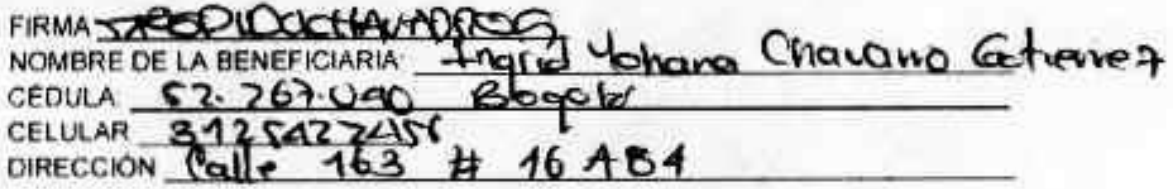 FIRMA
NOMBRE DE LA BENEFICIARIA Ingrid Yohana Chavarro Gutierrez
CÉDULA 52.767.090 Bogotá
CELULAR
DIRECCIÓN Calle 163 # 16 A 84